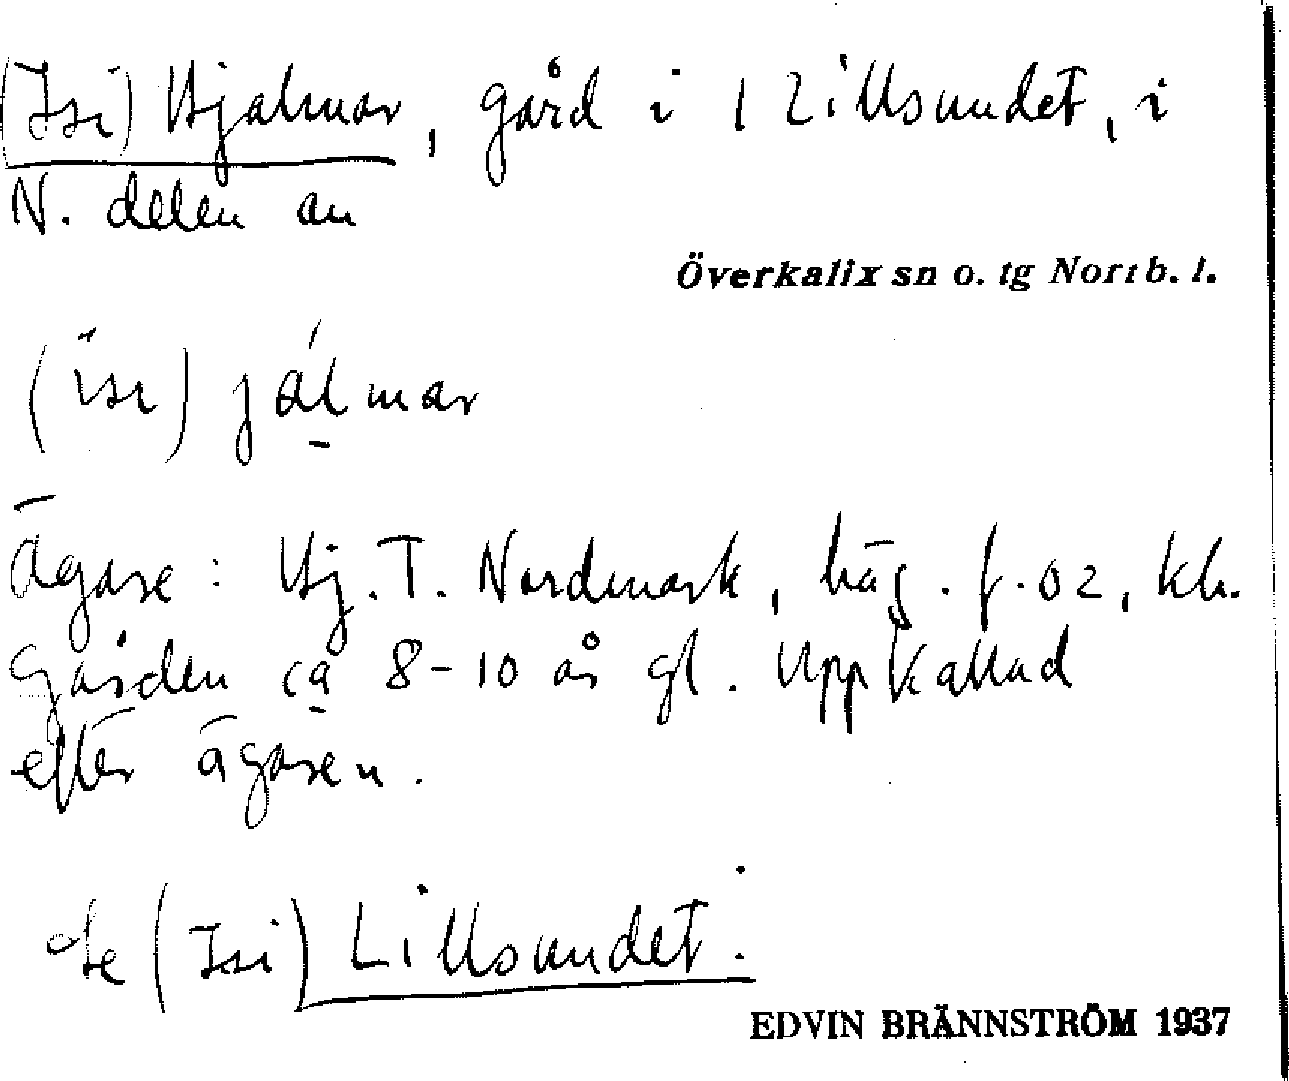 (Isi) Hjalmar, gård i 1 Lillsundet, i
N. delen av
Överkalix sn o. tg Norrb. l.
(ısı) jálmar
Ägare: Hj. T. Nordmark, häg. f. 02, kh.
Gården ca 8-10 år gl. Uppkallad
efter ägaren.
Se (Isi) Lillsundet.
EDVIN BRÄNNSTRÖM 1937